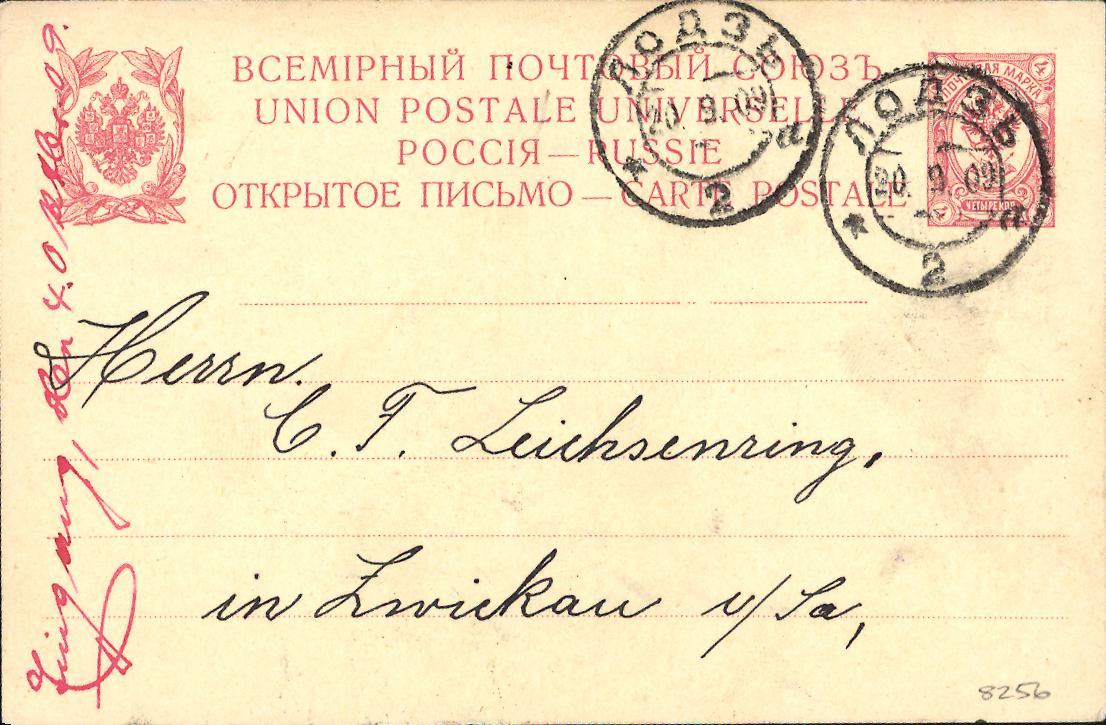 ВСЕМІРНЫЙ ПОЧТОВЫЙ СОЮЗЪ
UNION POSTALE UNIVERSELLE
РОССІЯ — RUSSIE
ОТКРЫТОЕ ПИСЬМО — CARTE POSTALE
ПОЧТОВАЯ МАРКА
4
ЧЕТЫРЕ КОП.
ЛОДЗЬ
20. 9. 09
2
ЛОДЗЬ
20. 9. 09
2
Herrn.
C. F. Leichsenring,
in Zwickau i/Sa,
Eingang, den 4. Oktober 09.
8256